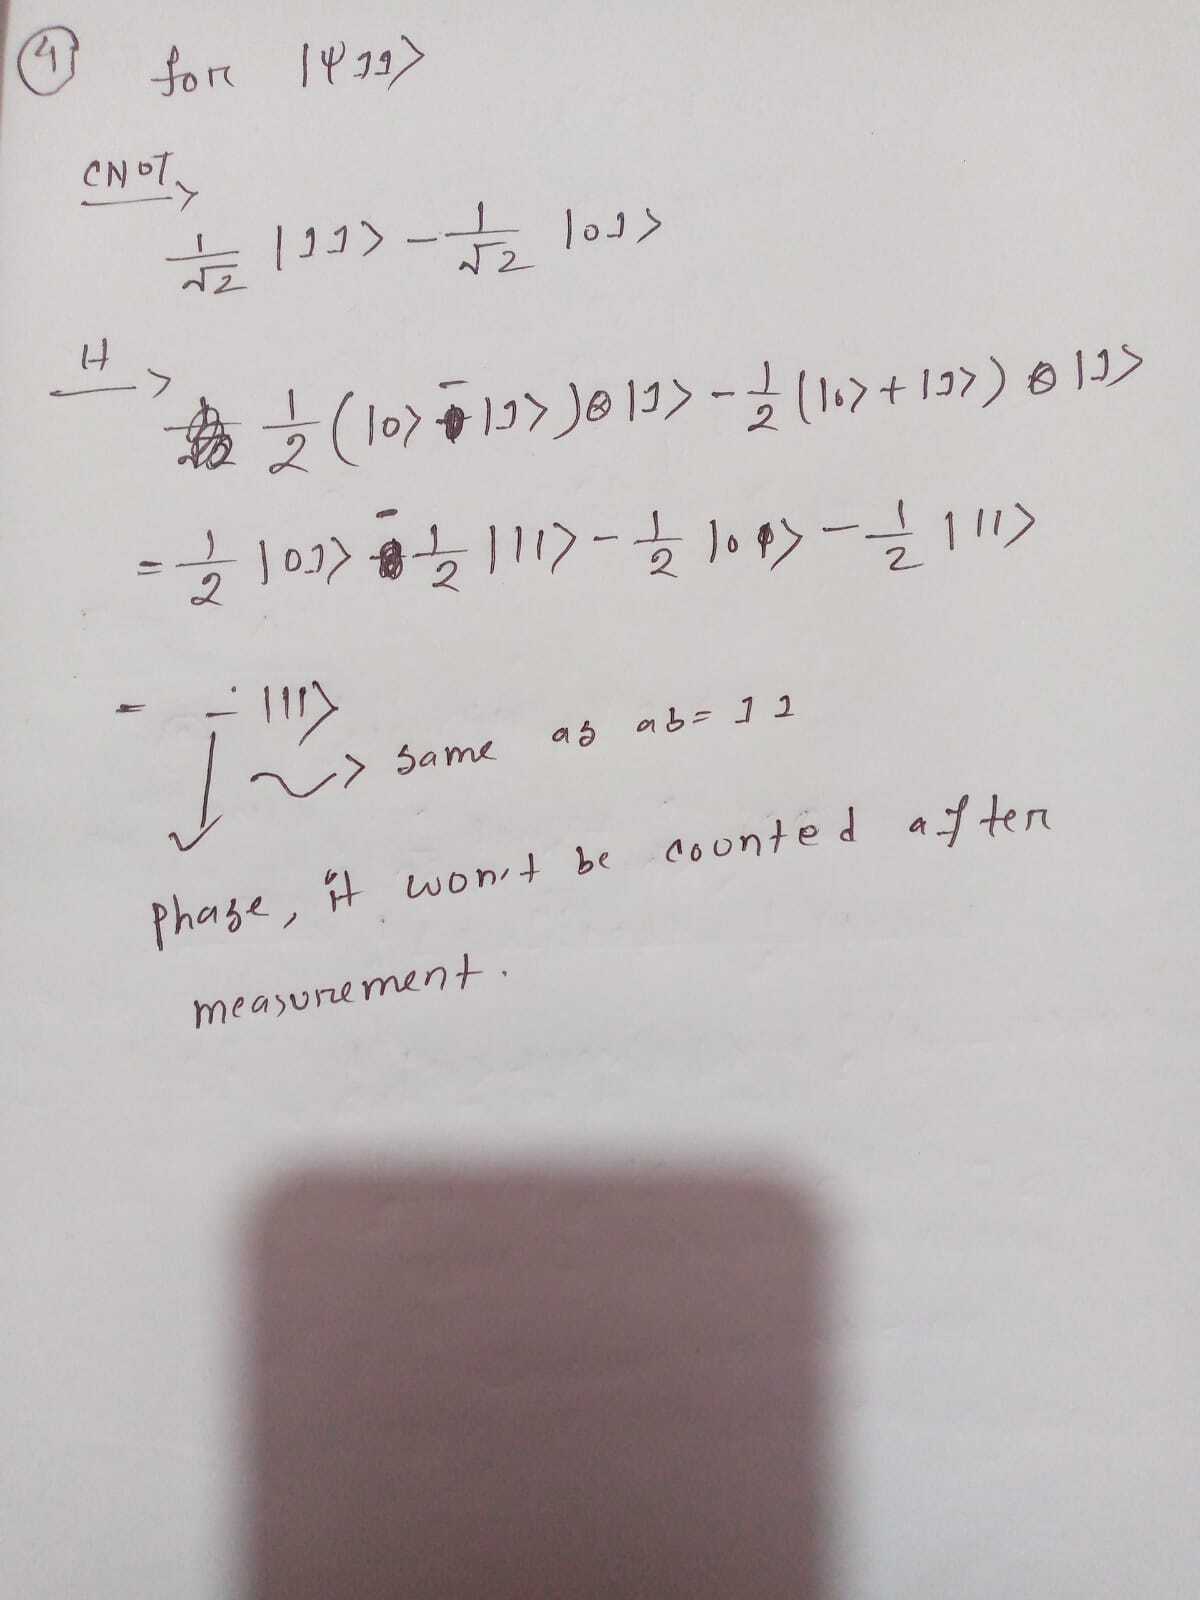 ④ for |ψ11>
CNOT
1/√2 |11> - 1/√2 |01>
H
1/2 (|0> - |1>) ⊗ |1> - 1/2 (|0> + |1>) ⊗ |1>
= 1/2 |01> - 1/2 |11> - 1/2 |01> - 1/2 |11>
= - |11>
same as ab = 11
phase, it won't be counted after
measurement.